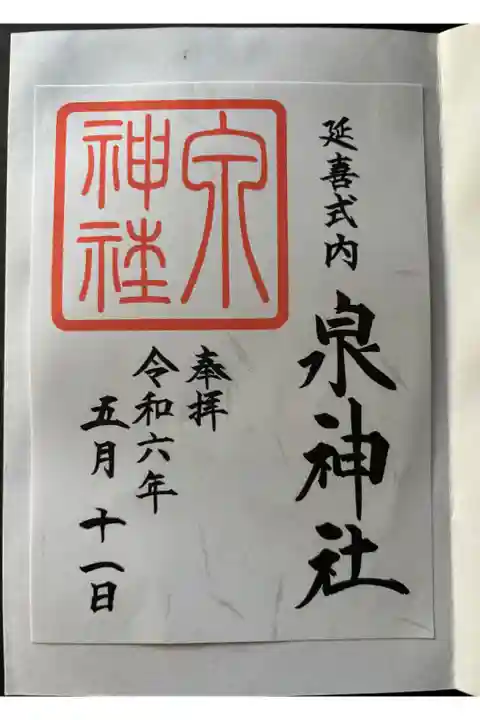 延喜式内 泉神社
泉神社
奉拝
令和六年
五月十一日